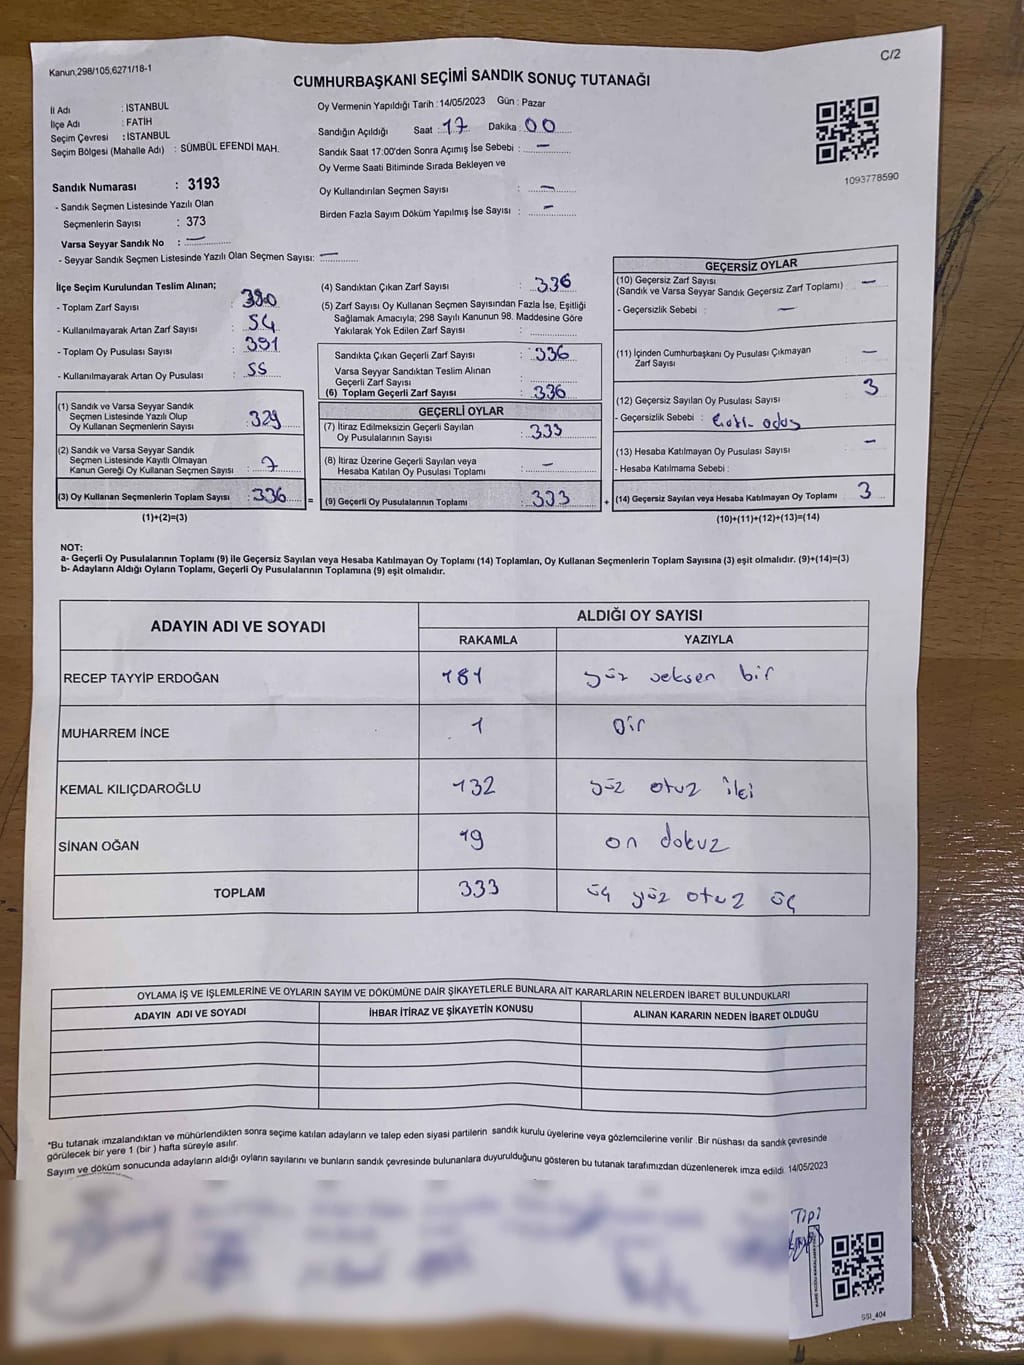 Kanun,298/105,6271/18-1
C/2
CUMHURBAŞKANI SEÇİMİ SANDIK SONUÇ TUTANAĞI
İl Adı : İSTANBUL
İlçe Adı : FATİH
Seçim Çevresi : İSTANBUL
Seçim Bölgesi (Mahalle Adı) : SÜMBÜL EFENDİ MAH.
Sandık Numarası : 3193
- Sandık Seçmen Listesinde Yazılı Olan
Seçmenlerin Sayısı : 373
Varsa Seyyar Sandık No : —
- Seyyar Sandık Seçmen Listesinde Yazılı Olan Seçmen Sayısı: —
Oy Vermenin Yapıldığı Tarih : 14/05/2023 Gün : Pazar
Sandığın Açıldığı Saat : 17 Dakika : 00
Sandık Saat 17:00'den Sonra Açımış İse Sebebi : —
Oy Verme Saati Bitiminde Sırada Bekleyen ve
Oy Kullandırılan Seçmen Sayısı : —
Birden Fazla Sayım Döküm Yapılmış İse Sayısı : —
1093778590
İlçe Seçim Kurulundan Teslim Alınan;
- Toplam Zarf Sayısı : 390
- Kullanılmayarak Artan Zarf Sayısı : 54
- Toplam Oy Pusulası Sayısı : 391
- Kullanılmayarak Artan Oy Pusulası : 55
(1) Sandık ve Varsa Seyyar Sandık
Seçmen Listesinde Yazılı Olup
Oy Kullanan Seçmenlerin Sayısı : 329
(2) Sandık ve Varsa Seyyar Sandık
Seçmen Listesinde Kayıtlı Olmayan
Kanun Gereği Oy Kullanan Seçmen Sayısı : 7
(3) Oy Kullanan Seçmenlerin Toplam Sayısı : 336 =
(1)+(2)=(3)
(4) Sandıktan Çıkan Zarf Sayısı : 336
(5) Zarf Sayısı Oy Kullanan Seçmen Sayısından Fazla İse, Eşitliği
Sağlamak Amacıyla; 298 Sayılı Kanunun 98. Maddesine Göre
Yakılarak Yok Edilen Zarf Sayısı :
Sandıkta Çıkan Geçerli Zarf Sayısı : 336
Varsa Seyyar Sandıktan Teslim Alınan
Geçerli Zarf Sayısı :
(6) Toplam Geçerli Zarf Sayısı : 336
GEÇERLİ OYLAR
(7) İtiraz Edilmeksizin Geçerli Sayılan
Oy Pusulalarının Sayısı : 333
(8) İtiraz Üzerine Geçerli Sayılan veya
Hesaba Katılan Oy Pusulası Toplamı : —
(9) Geçerli Oy Pusulalarının Toplamı : 333 +
GEÇERSİZ OYLAR
(10) Geçersiz Zarf Sayısı
(Sandık ve Varsa Seyyar Sandık Geçersiz Zarf Toplamı) : —
- Geçersizlik Sebebi : —
(11) İçinden Cumhurbaşkanı Oy Pusulası Çıkmayan
Zarf Sayısı : —
(12) Geçersiz Sayılan Oy Pusulası Sayısı : 3
- Geçersizlik Sebebi :
(13) Hesaba Katılmayan Oy Pusulası Sayısı : —
- Hesaba Katılmama Sebebi :
(14) Geçersiz Sayılan veya Hesaba Katılmayan Oy Toplamı : 3
(10)+(11)+(12)+(13)=(14)
NOT:
a- Geçerli Oy Pusulalarının Toplamı (9) ile Geçersiz Sayılan veya Hesaba Katılmayan Oy Toplamı (14) Toplamları, Oy Kullanan Seçmenlerin Toplam Sayısına (3) eşit olmalıdır. (9)+(14)=(3)
b- Adayların Aldığı Oyların Toplamı, Geçerli Oy Pusulalarının Toplamına (9) eşit olmalıdır.
ADAYIN ADI VE SOYADI
ALDIĞI OY SAYISI
RAKAMLA YAZIYLA
RECEP TAYYİP ERDOĞAN 181 yüz seksen bir
MUHARREM İNCE 1 Bir
KEMAL KILIÇDAROĞLU 132 yüz otuz iki
SİNAN OĞAN 19 on dokuz
TOPLAM 333 üç yüz otuz üç
OYLAMA İŞ VE İŞLEMLERİNE VE OYLARIN SAYIM VE DÖKÜMÜNE DAİR ŞİKAYETLERLE BUNLARA AİT KARARLARIN NELERDEN İBARET BULUNDUKLARI
ADAYIN ADI VE SOYADI İHBAR İTİRAZ VE ŞİKAYETİN KONUSU ALINAN KARARIN NEDEN İBARET OLDUĞU
*Bu tutanak imzalandıktan ve mühürlendikten sonra seçime katılan adayların ve talep eden siyasi partilerin sandık kurulu üyelerine veya gözlemcilerine verilir. Bir nüshası da sandık çevresinde
görülecek bir yere 1 (bir ) hafta süreyle asılır.
Sayım ve döküm sonucunda adayların aldığı oyların sayılarını ve bunların sandık çevresinde bulunanlara duyurulduğunu gösteren bu tutanak tarafımızdan düzenlenerek imza edildi. 14/05/2023
Tipi
SSI_404